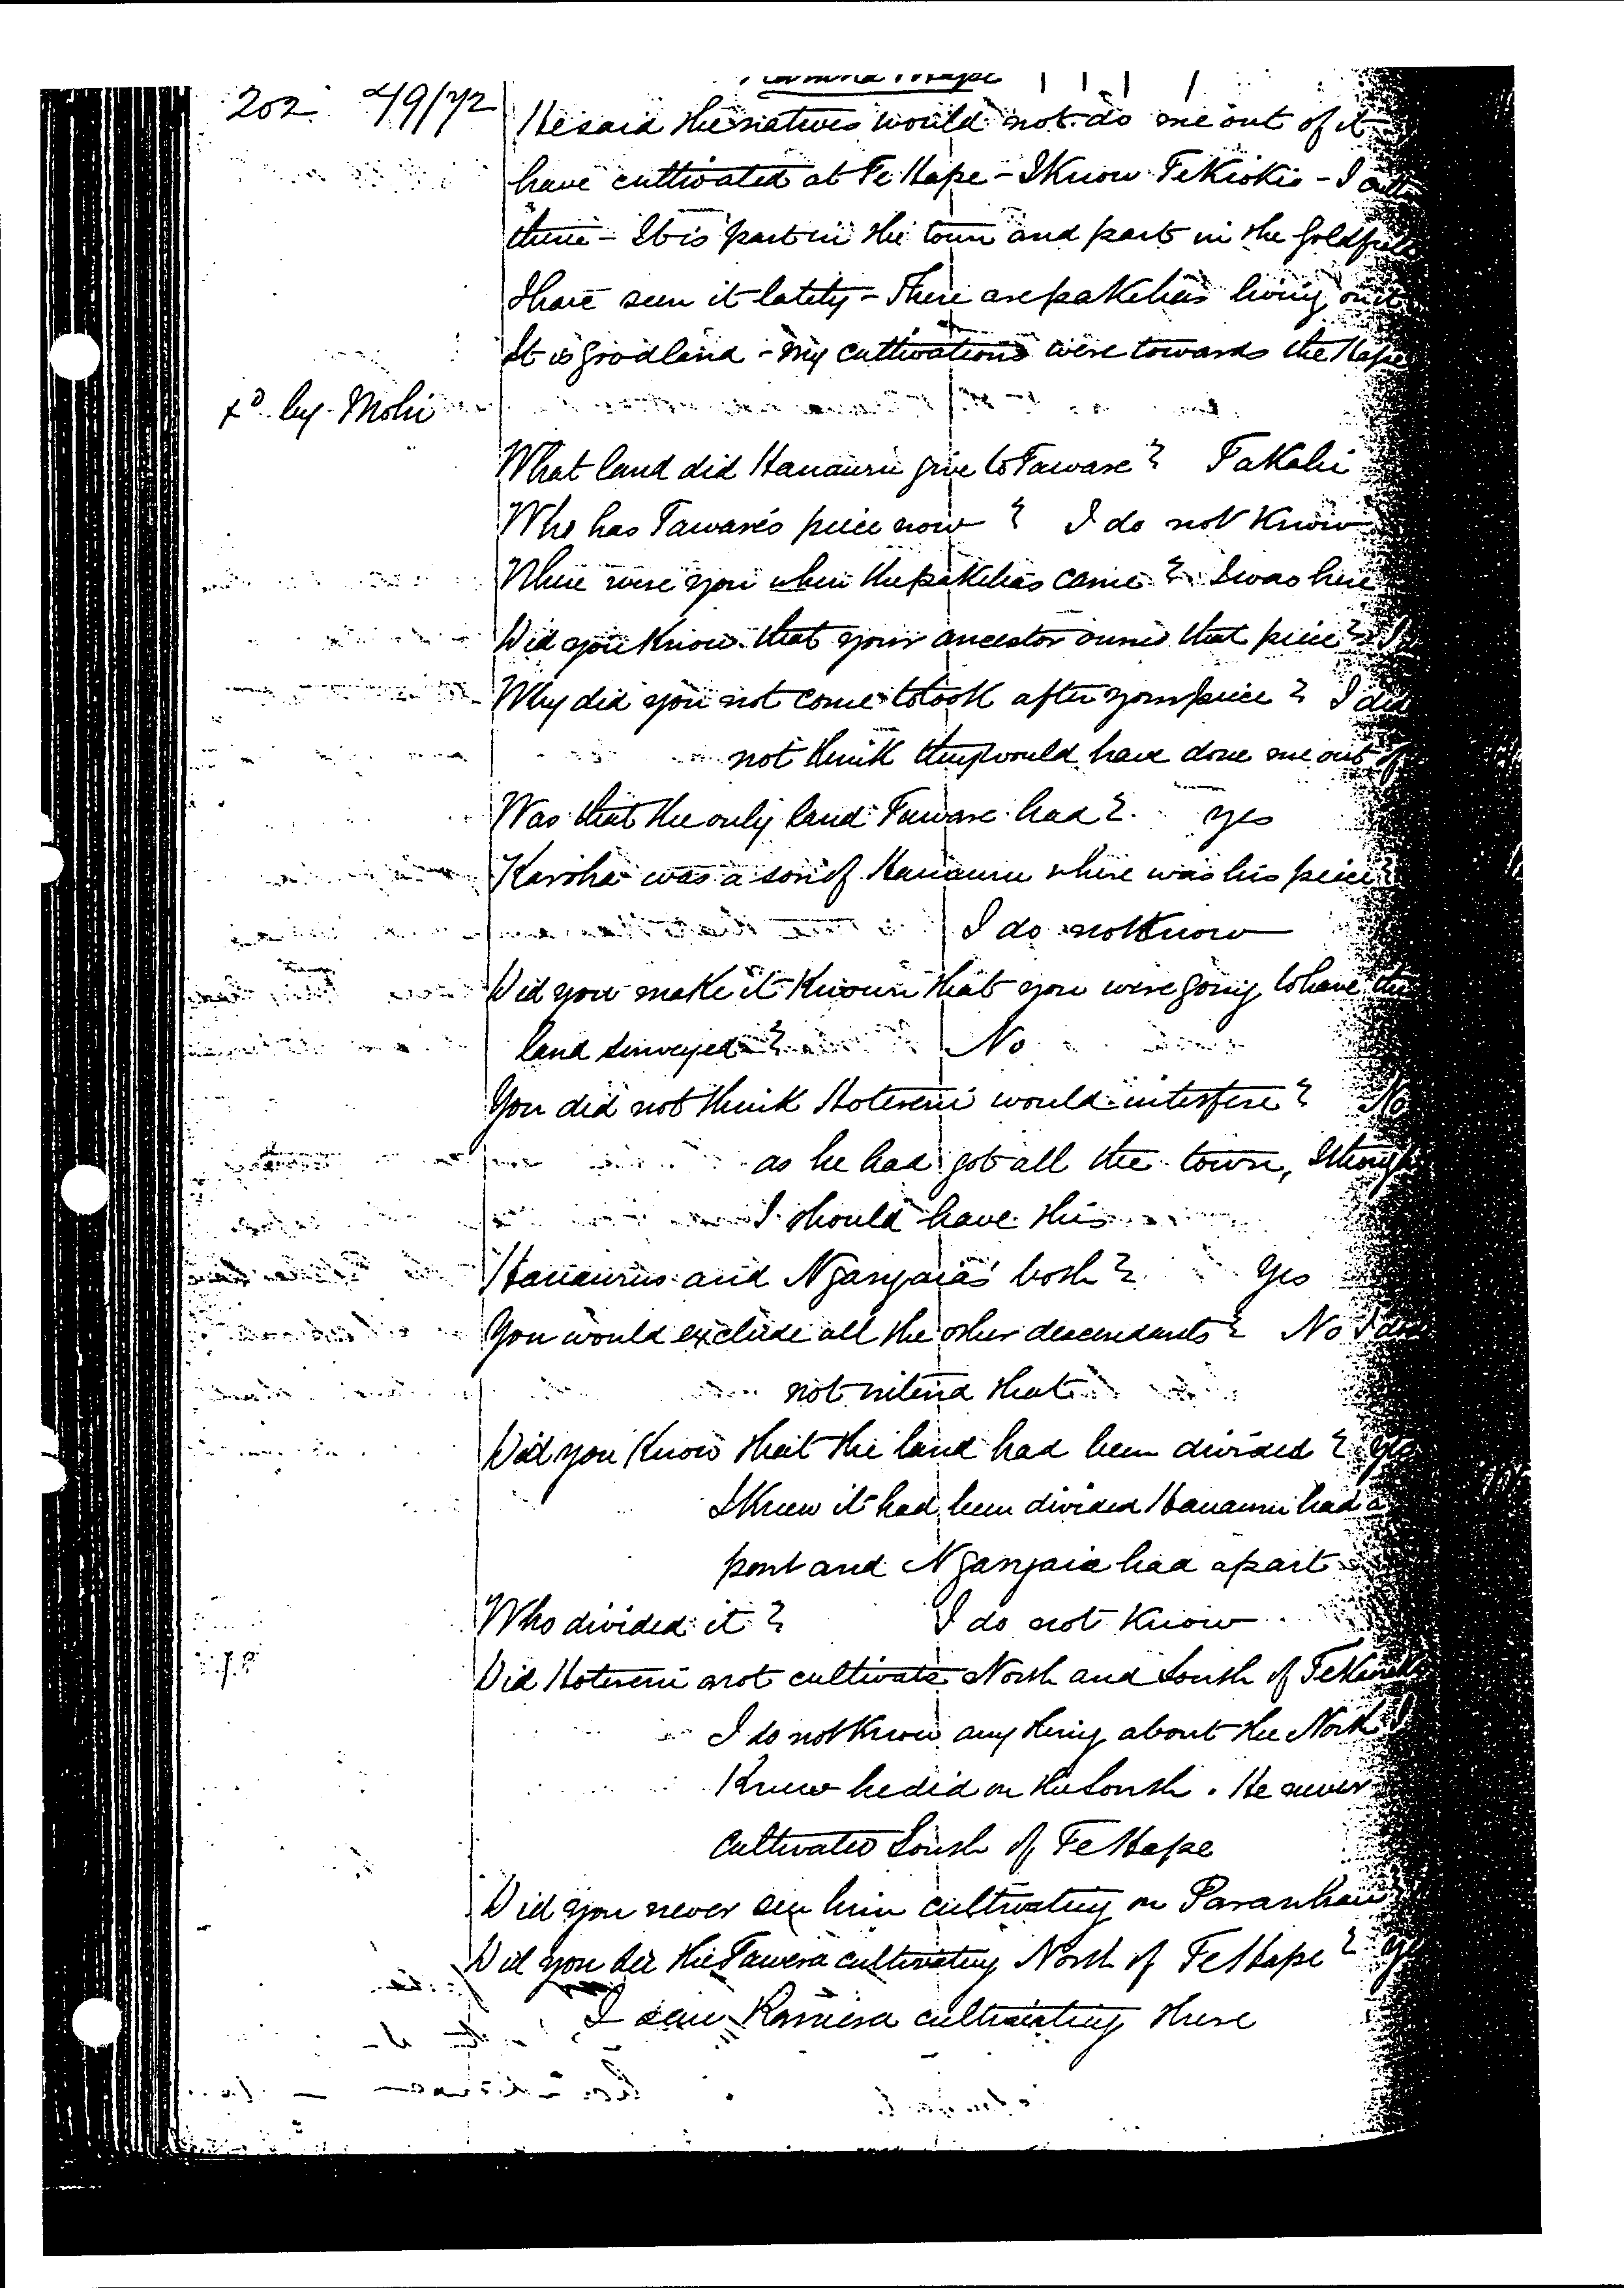 202 4/9/72
He said the natives would not do me out of it
have cultivated at Te Hape - I Know TeKiokio - I
there - It is part in the town and part in the Goldfield
I have seen it lately - There are pakehas living on it
It is good land - My cultivations were towards the Hape
xd by Mohi
What land did Hanauru give to Taware? TaKahi
Who has Taware's piece now? I do not Know
Where were you when the pakehas came? I was here
Did you Know that your ancestor owned that piece?
Why did you not come to look after your piece? I did
not think they would have done me out of
Was that the only land Taware had? Yes
Karoha was a son of Hanauru where was his piece?
I do not Know
Did you make it Known that you were going to have the
land surveyed? No
You did not think Hotereni would interfere? No
as he had got all the town, I thought
I should have this
Hanaurus and Ngangaia's both? Yes
You would exclude all the other descendants? No I do
not intend that
Did you Know that the land had been divided? Yes
I Knew it had been divided Hanauru had a
part and Ngangaia had a part
Who divided it? I do not Know
Did Hotereni not cultivate North and South of
I do not Know any thing about the North I
Knew he did on the South. He never
cultivated South of Te Hape
Did you never see him cultivating on
Did you see the Tawera cultivating North of Te Hape? Yes
I saw Ramera cultivating there